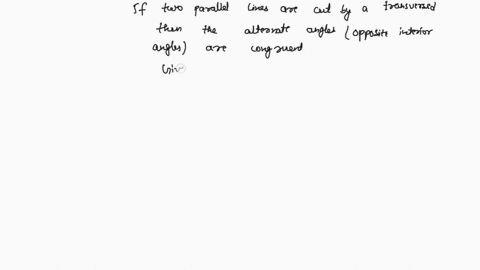 If two parallel lines are cut by a transversal
then the alternate angles (opposite interior
angles) are congruent
Giv